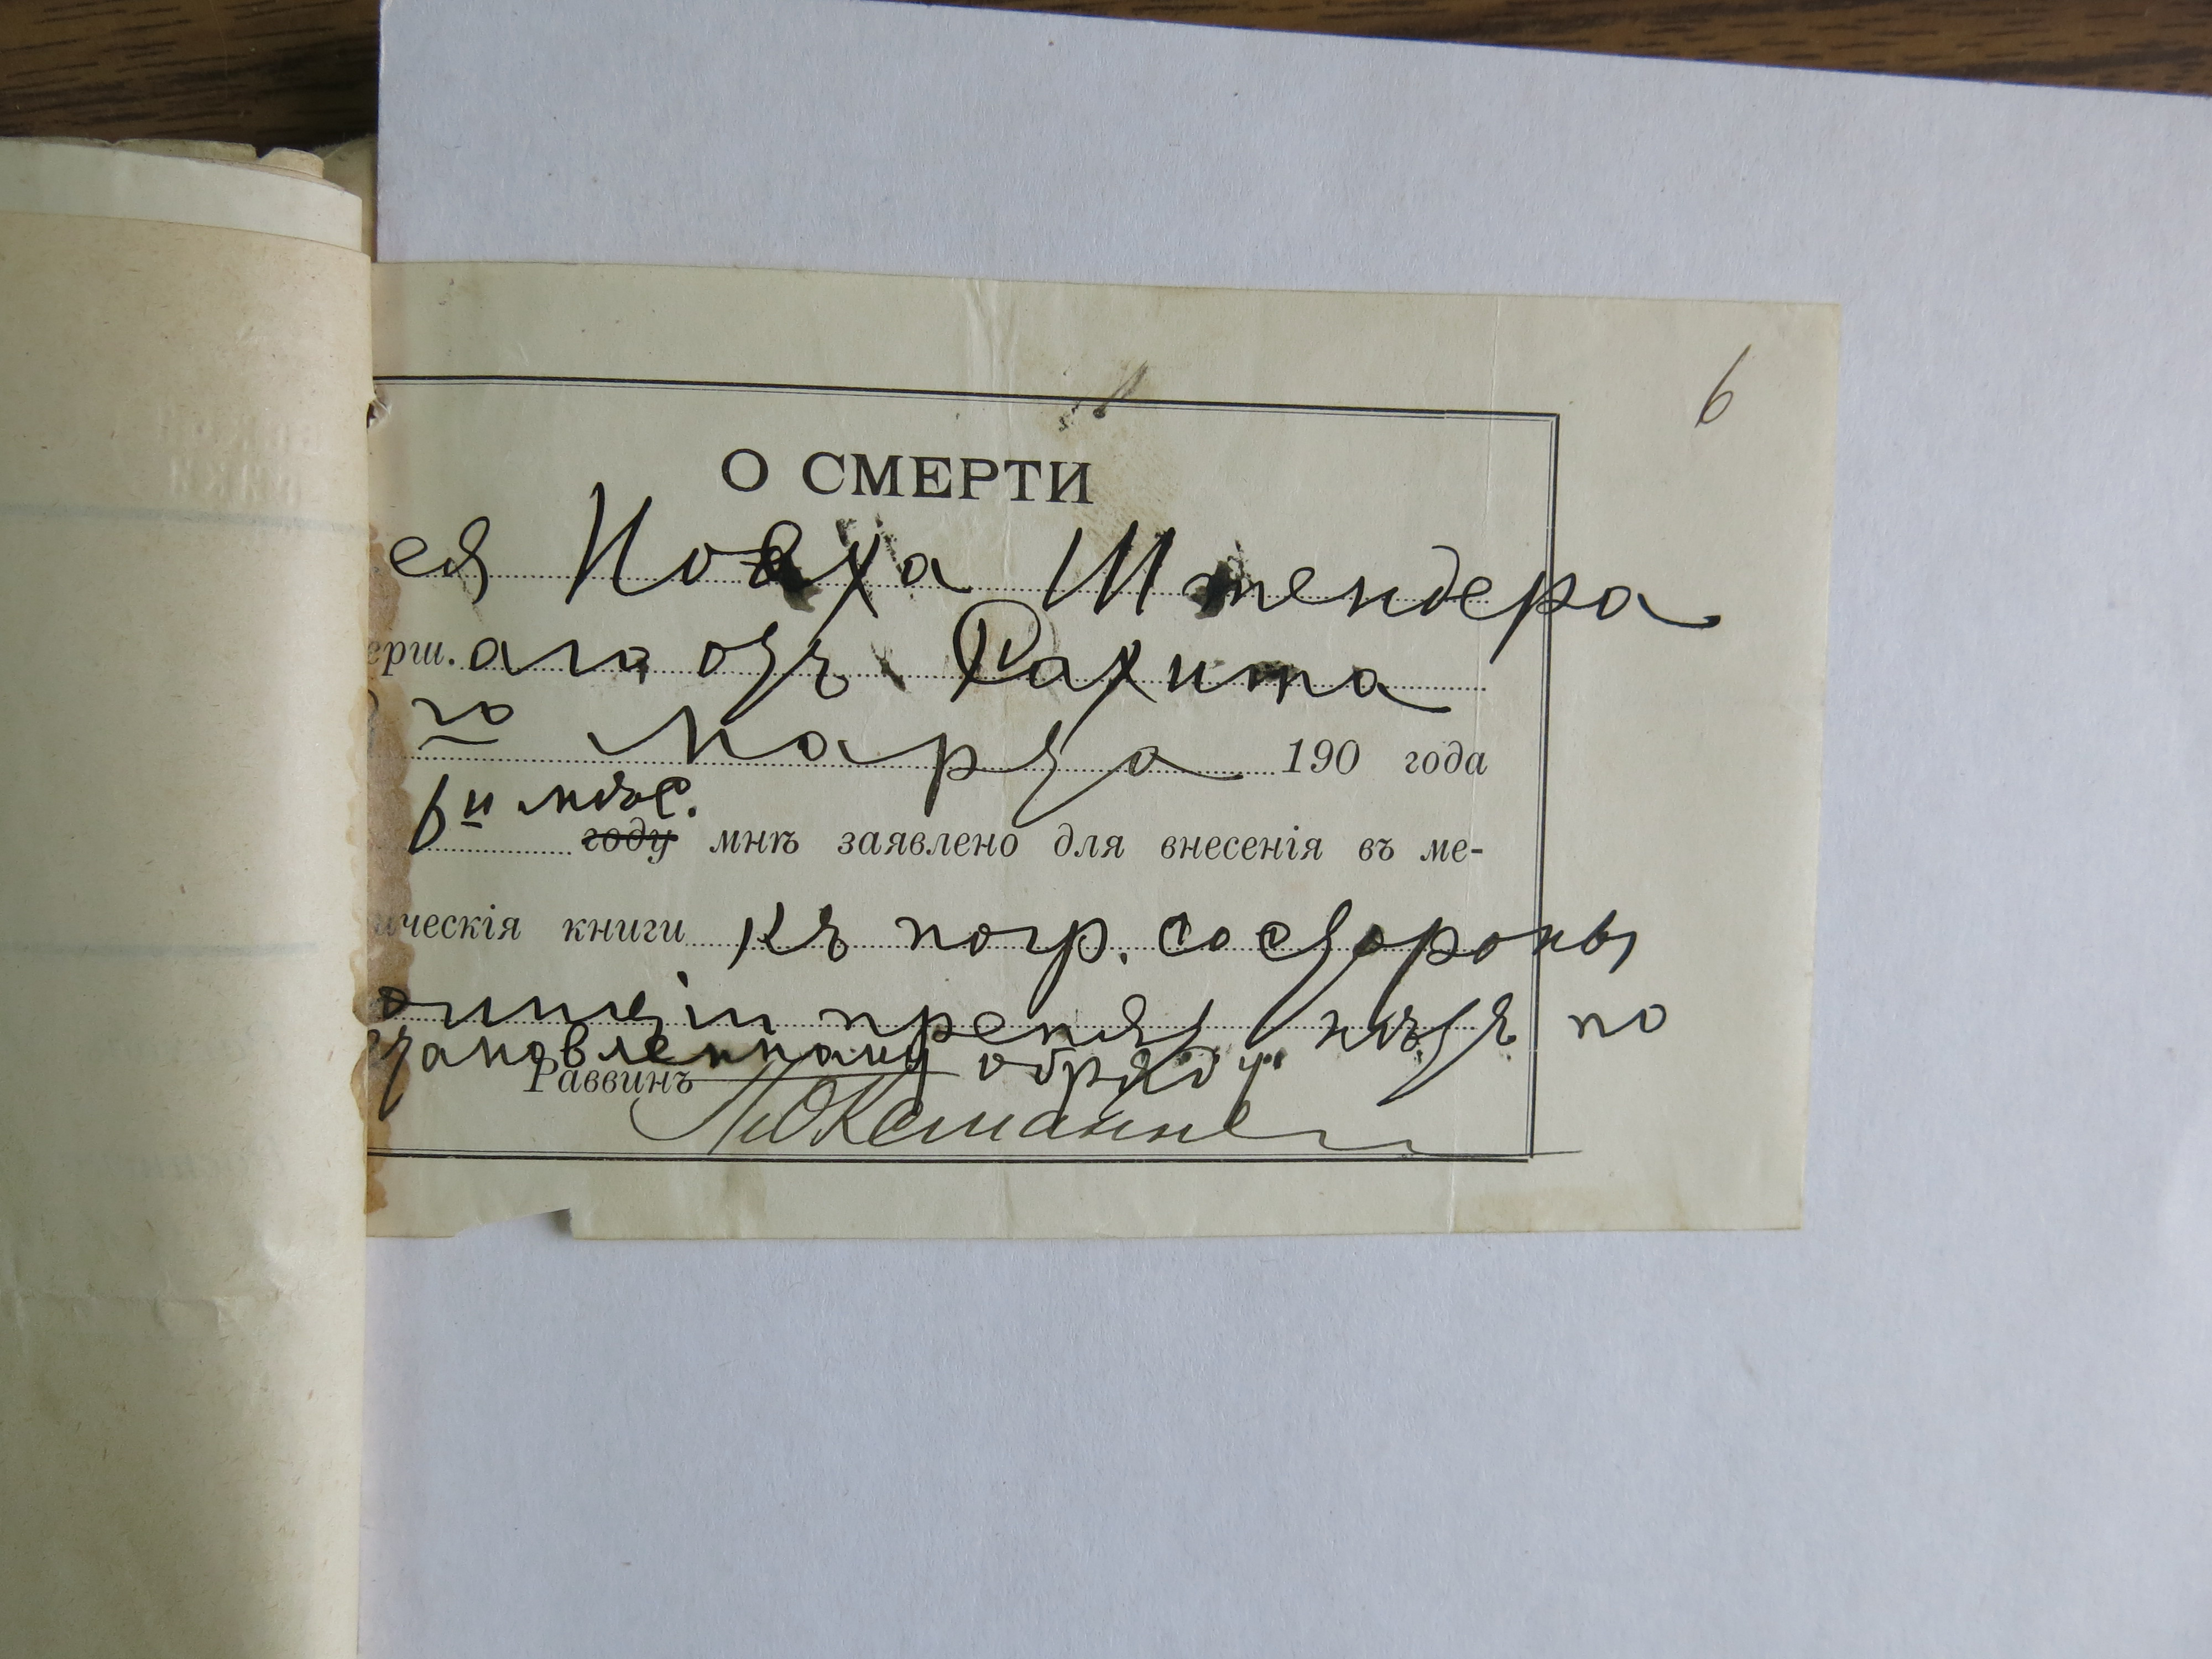 6
О СМЕРТИ
ея Новха Штендера
ерш. аго отъ Рахита
го Марта 190 года
6 и мѣс.
году мнѣ заявлено для внесенія въ ме-
ическія книги къ погр. со стороны
олиціи препят нѣтъ по
становленному обряду
Раввинъ